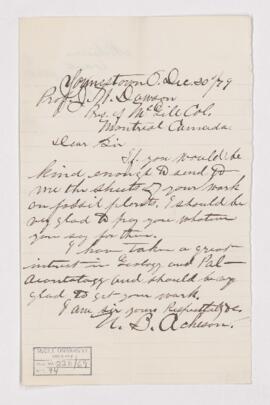 Youngstown O. Dec 30/79
Prof. J. W. Dawson
Pres of McGill Col.
Montreal Canada.
Dear Sir
If you would be
kind enough to send to
me the sheets of your work
on fossil plants, I should be
very glad to pay you whatever
you say for them.
I have taken a great
interest in Geology and Pal-
aeontology and should be very
glad to get your work.
I am sir yours Respectfully &c.
B. Acheson.
McGILL UNIVERSITY
ARCHIVES